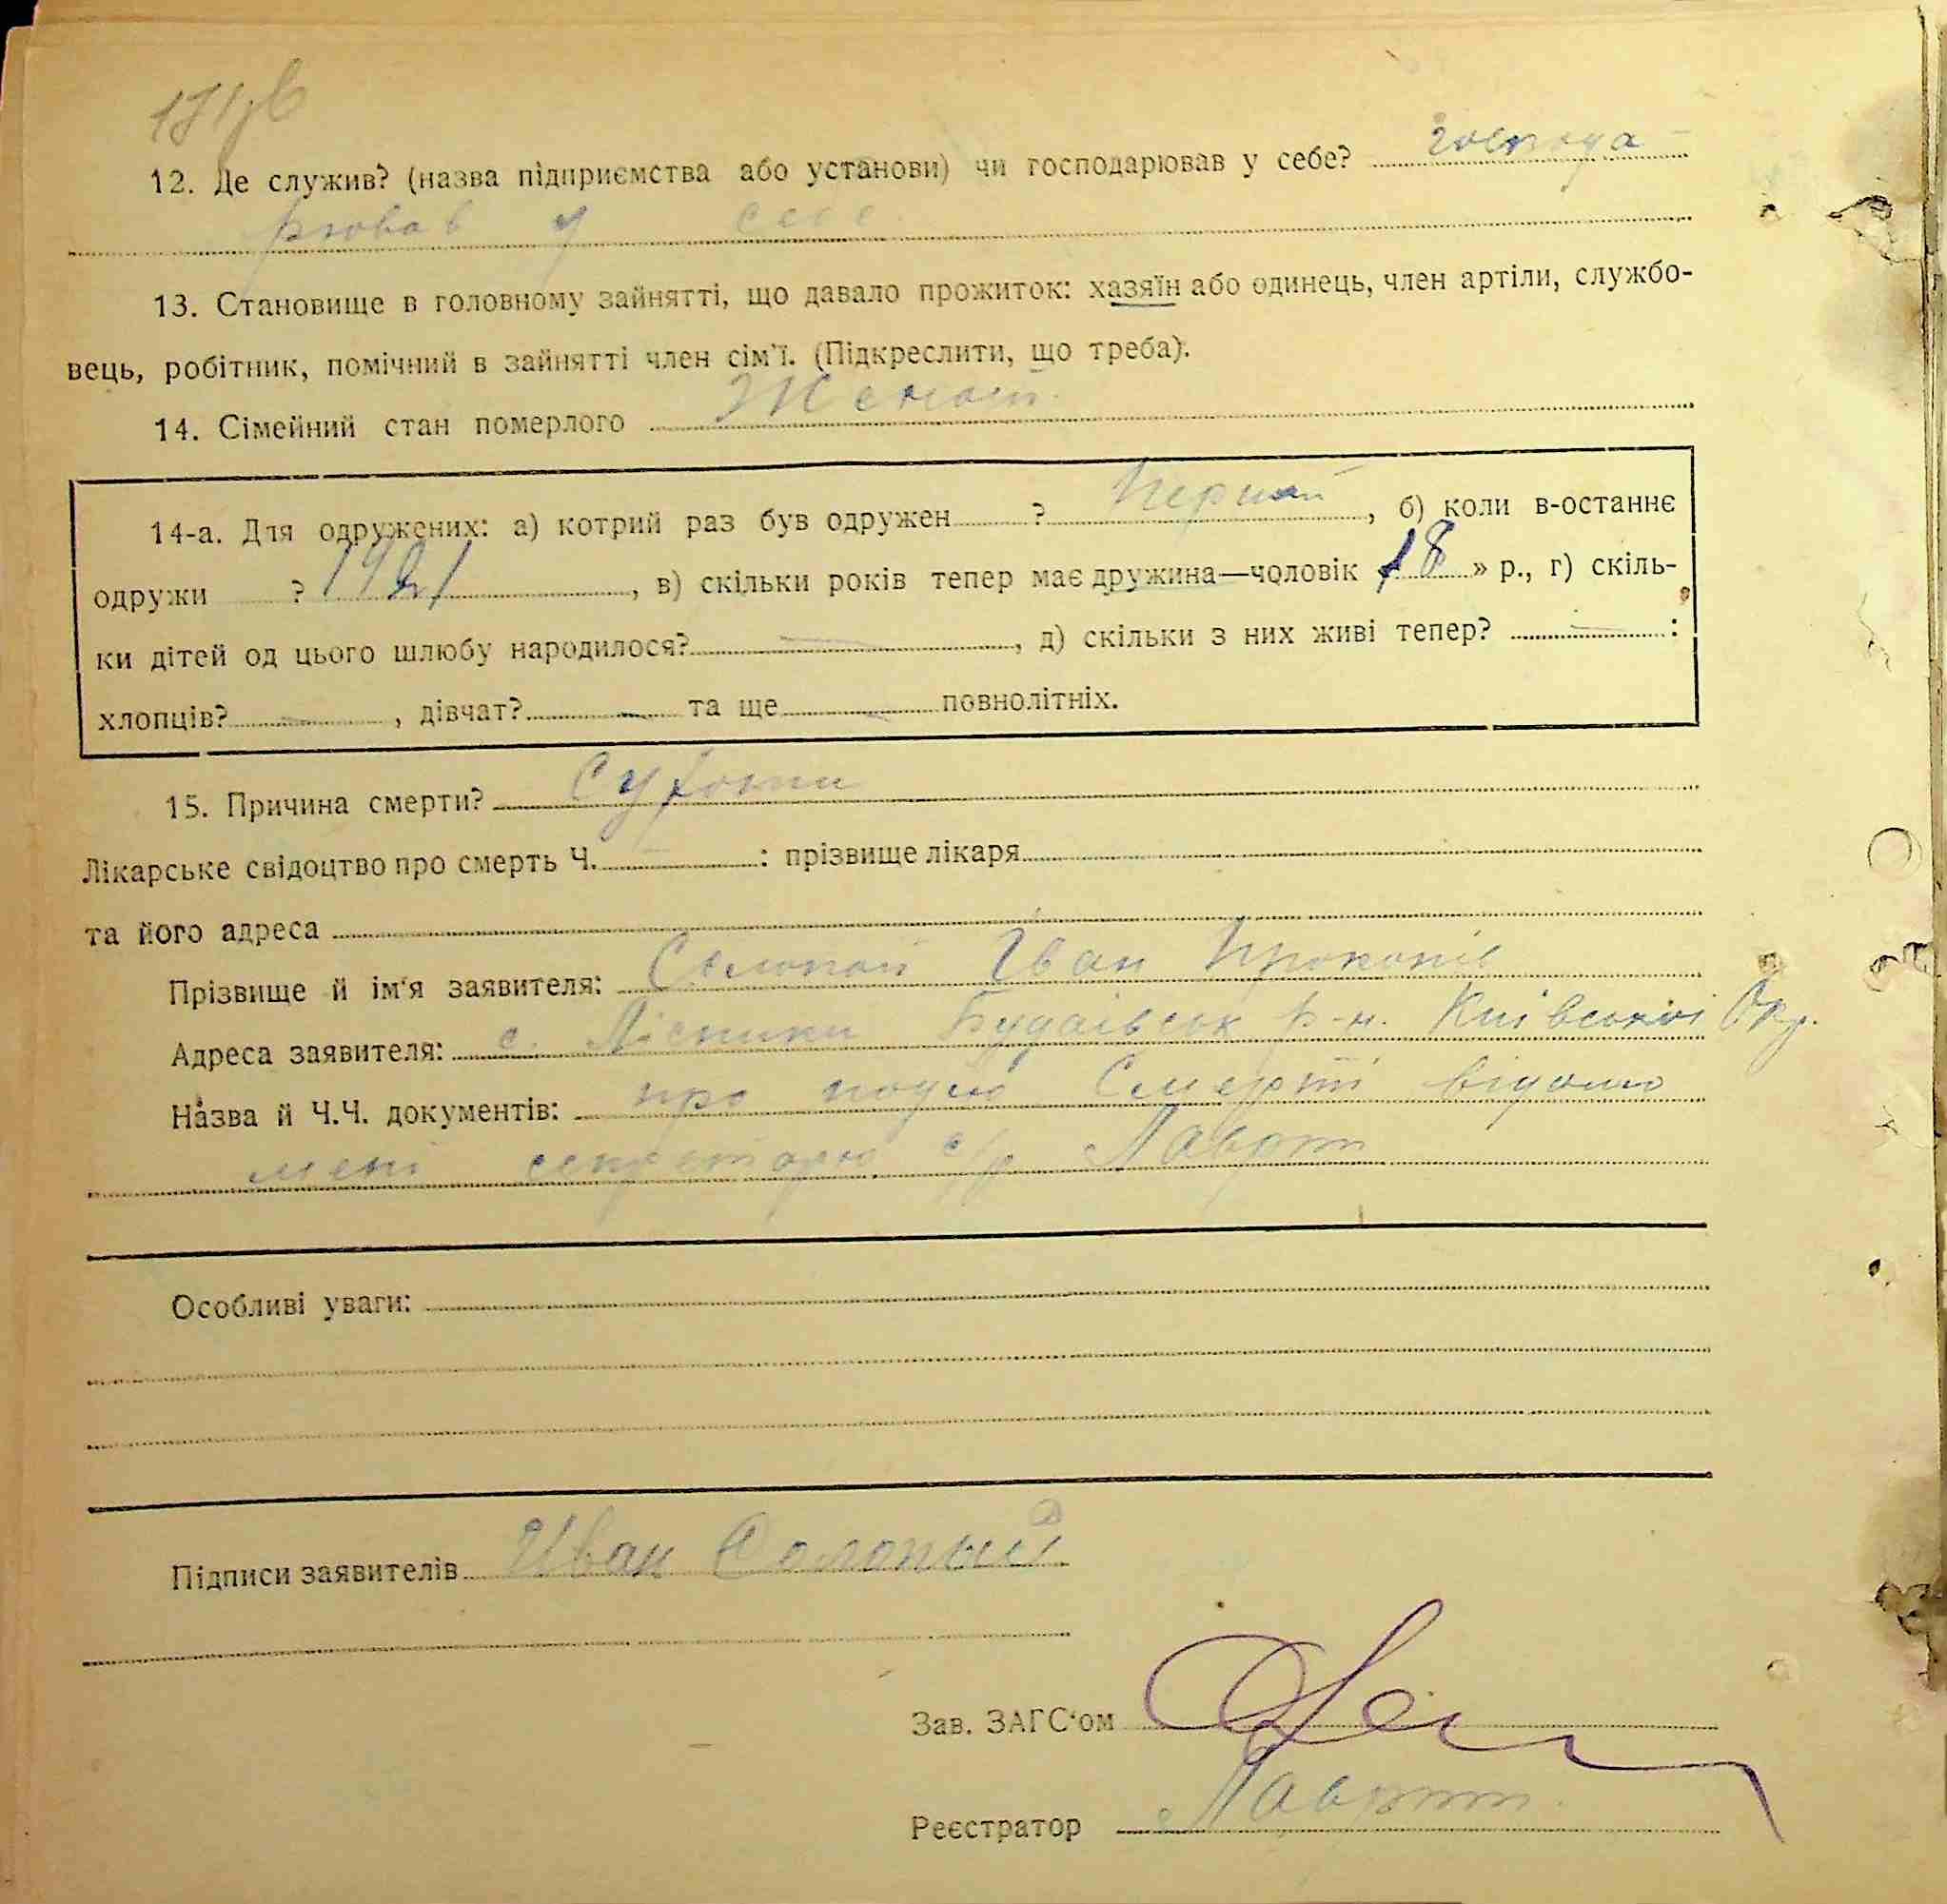 171зв
12. Де служив? (назва підприємства або установи) чи господарював у себе? господа-
рював у себе
13. Становище в головному зайнятті, що давало прожиток: хазяїн або одинець, член артіли, службо-
вець, робітник, помічний в зайнятті член сім'ї. (Підкреслити, що треба).
14. Сімейний стан померлого Женат.
14-а. Для одружених: а) котрий раз був одружен ? Перший, б) коли в-останнє
одружи ? 1921, в) скільки років тепер має дружина—чоловік 18 » р., г) скіль-
ки дітей од цього шлюбу народилося? —, д) скільки з них живі тепер? — :
хлопців? —, дівчат? — та ще — повнолітніх.
15. Причина смерти? Сухоти
Лікарське свідоцтво про смерть Ч. — : прізвище лікаря
та його адреса
Прізвище й ім'я заявителя: Солопай Іван Прокопів
Адреса заявителя: с. Лісники Будаівськ р-н. Київської Окр.
Назва й Ч.Ч. документів: про подію Смерті відомо
мені секретарю с/р
Особливі уваги:
Підписи заявителів Иван
Зав. ЗАГС'ом
Реєстратор